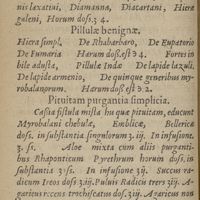 nis laxatiui, Diamanna, Diacartami, Hiera
galeni, Horum dos. 3 4.
Pillulæ benignæ.
Hiera simpl. De Rhabarbaro, De Eupatorio
De Fumaria Harum dos. est 4. Fortes in
bile adusta, Pillulæ Indæ De lapide lazuli,
De lapide armenio, De quinque generibus my-
robalanorum. Harum dos. est 2.
Pituitam purgantia simplicia.
Casia fistula mista huic quæ pituitam, educunt
Myrobalani chebulæ, Emblicæ, Bellericæ
dos. in substantia singulorum 3. iij. In infusione
Aloe mixta cum aliis purganti-
bus Rhaponticum Pyrethrum horum dos. in
substantia In infusione 3ij Succus ra-
dicum Ireos dos. 3.iij. Puluis Radicis trers
garicus recens trochiscatus dos. 3ij. Agaricus non